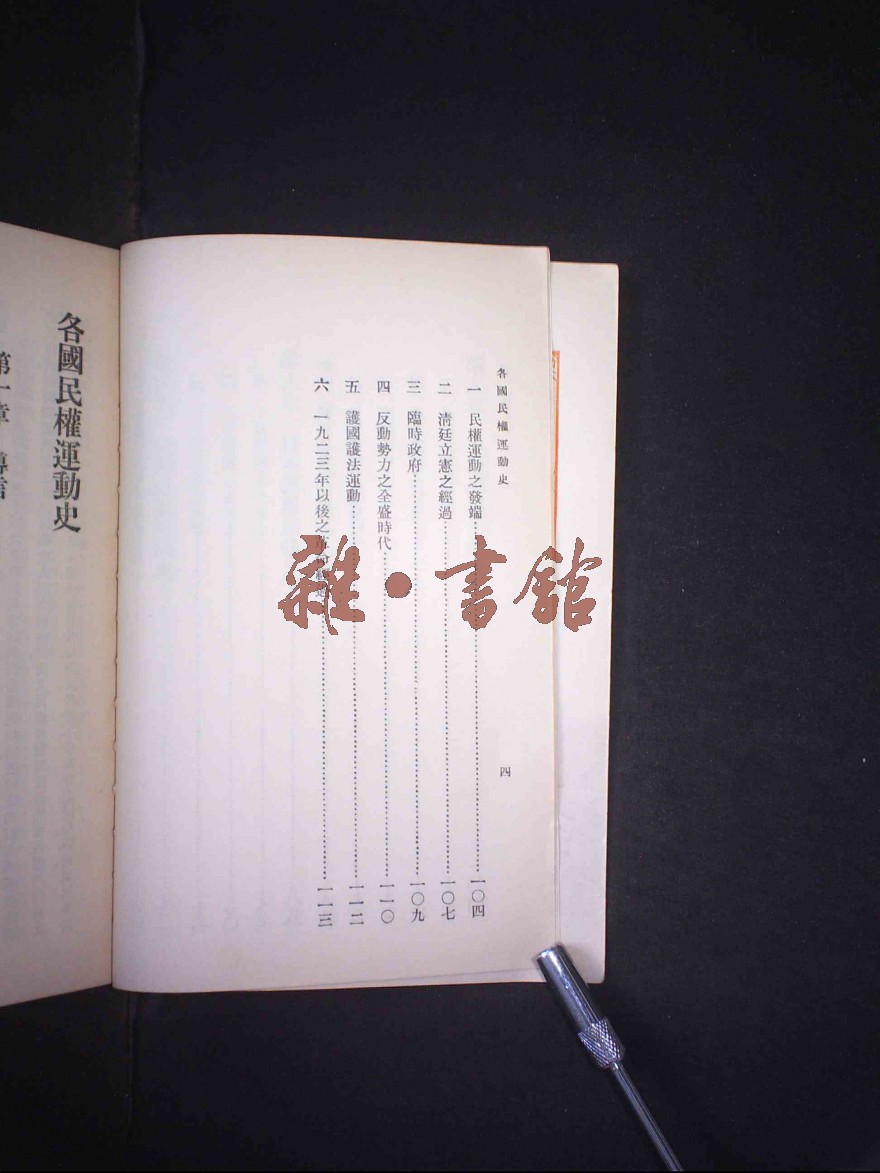 各國民權運動史
四
一 民權運動之發端……一〇四
二 清廷立憲之經過……一〇七
三 臨時政府……一〇九
四 反動勢力之全盛時代……一一〇
五 護國護法運動……一一二
六 一九二三年以後之……一一三
各國民權運動史
第一章 導言
雜•書館